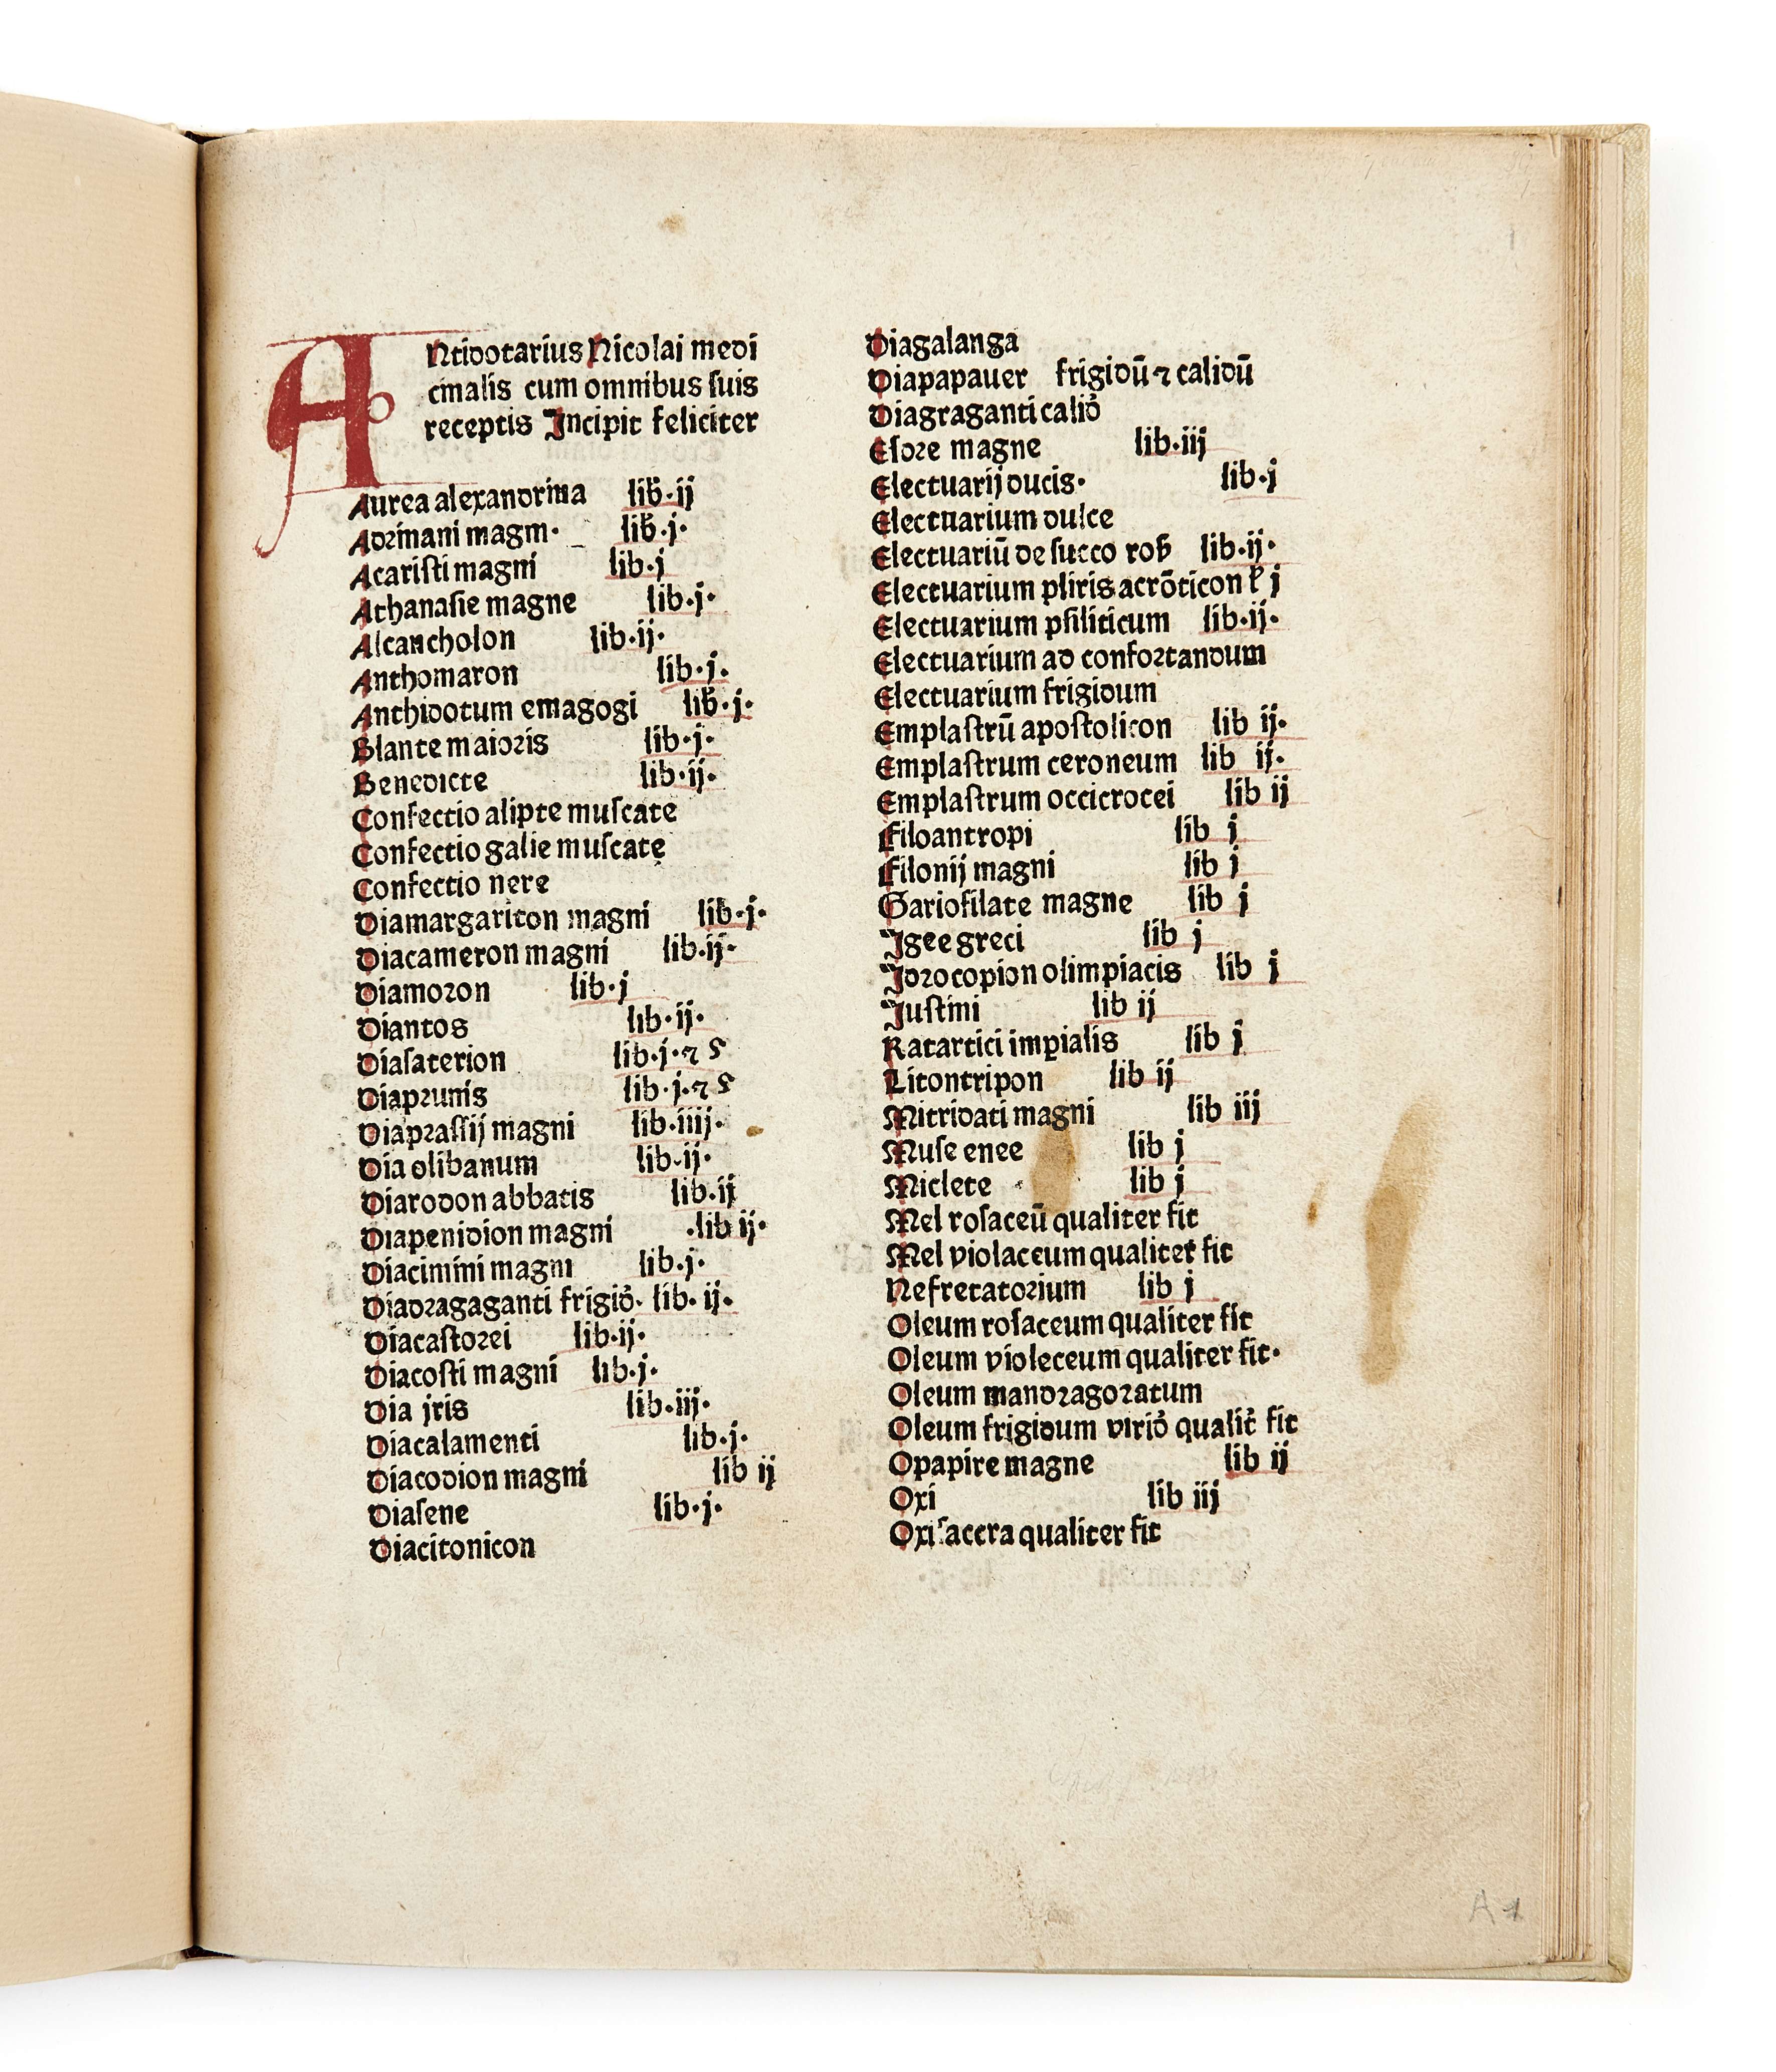 Antidotarius Nicolai medi
cinalis cum omnibus suis
receptis Incipit feliciter
Aurea alexandrina lib·ij
Adrmani magni· lib·j·
Acaristi magni lib·j
Athanasie magne lib·j·
Alcancholon lib·ij·
Anthomaron lib·j·
Anthidotum emagogi lib·j·
Blante maioris lib·j·
Benedicte lib·ij·
Confectio alipte muscate
Confectio galie muscate
Confectio nere
Diamargariton magni lib·j·
Diacameron magni lib·ij·
Diamoron lib·j
Diantos lib·ij·
Diasaterion lib·j·⁊ ʃ
Diaprunis lib·j·⁊ ʃ
Diaprassij magni lib·iiij·
Dia olibanum lib·ij·
Diarodon abbatis lib·ij
Diapenidion magni ·lib ij·
Diacimini magni lib·j·
Diadragaganti frigid̾· lib· ij·
Diacastorei lib·ij·
Diacosti magni lib·j·
Dia jris lib·iij·
Diacalamenti lib·j·
Diacodion magni lib ij
Diasene lib·j·
Diacitonicon
Diagalanga
Diapapauer frigidū ⁊ calidū
Diagraganti calid̾
Esdre magne lib·iij
Electuarij ducis· lib·j
Electuarium dulce
Electuariū de succo ros̄ lib·ij·
Electuarium pliris acrōticon j
Electuarium psiliticum lib·ij·
Electuarium ad confortandum
Electuarium frigidum
Emplastrū apostolicon lib ij·
Emplastrum ceroneum lib ij·
Emplastrum occicrocei lib ij
Filoantropi lib j
Filonij magni lib j
Gariofilate magne lib j
Igee greci lib j
Idrocopion olimpiacis lib j
Iustini lib ij
Katartici imꝑialis lib j
Litontripon lib ij
Mitridati magni lib iij
Muse enee lib j
Miclete lib j
Mel rosaceū qualiter fit
Mel violaceum qualiter fit
Nefretatorium lib j
Oleum rosaceum qualiter fit
Oleum violeceum qualiter fit·
Oleum mandragoratum
Oleum frigidum virid̾ qualit̾ fit
Opapire magne lib ij
Oxi lib iij
Oxisacera qualiter fit
A 1